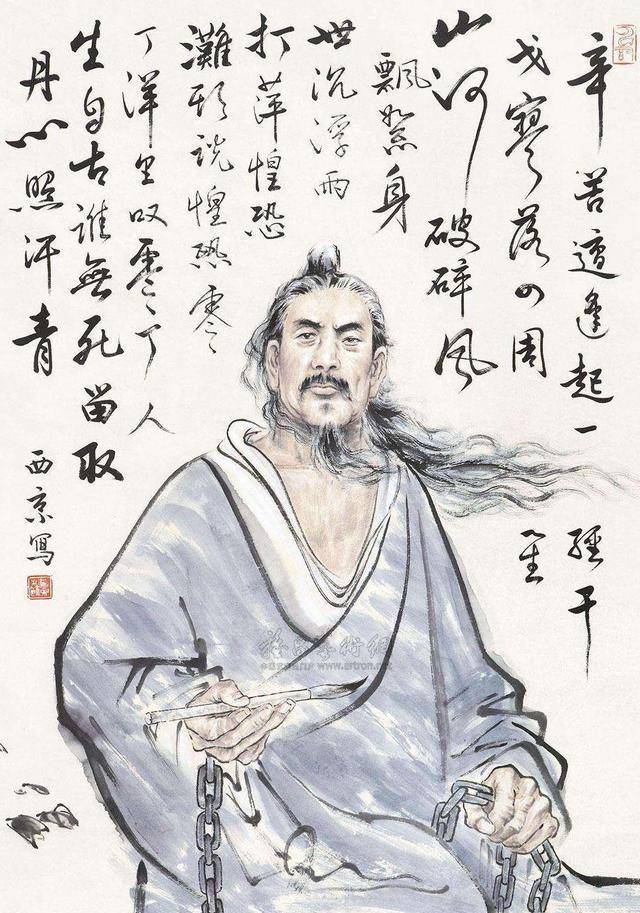 辛苦遭逢起一經干
戈寥落四周星
山河破碎風
飄絮身
世沉浮雨
打萍惶恐
灘頭說惶恐零
丁洋里叹零丁人
生自古誰無死留取
丹心照汗青
西京寫
雅昌藝術網
www.artron.net